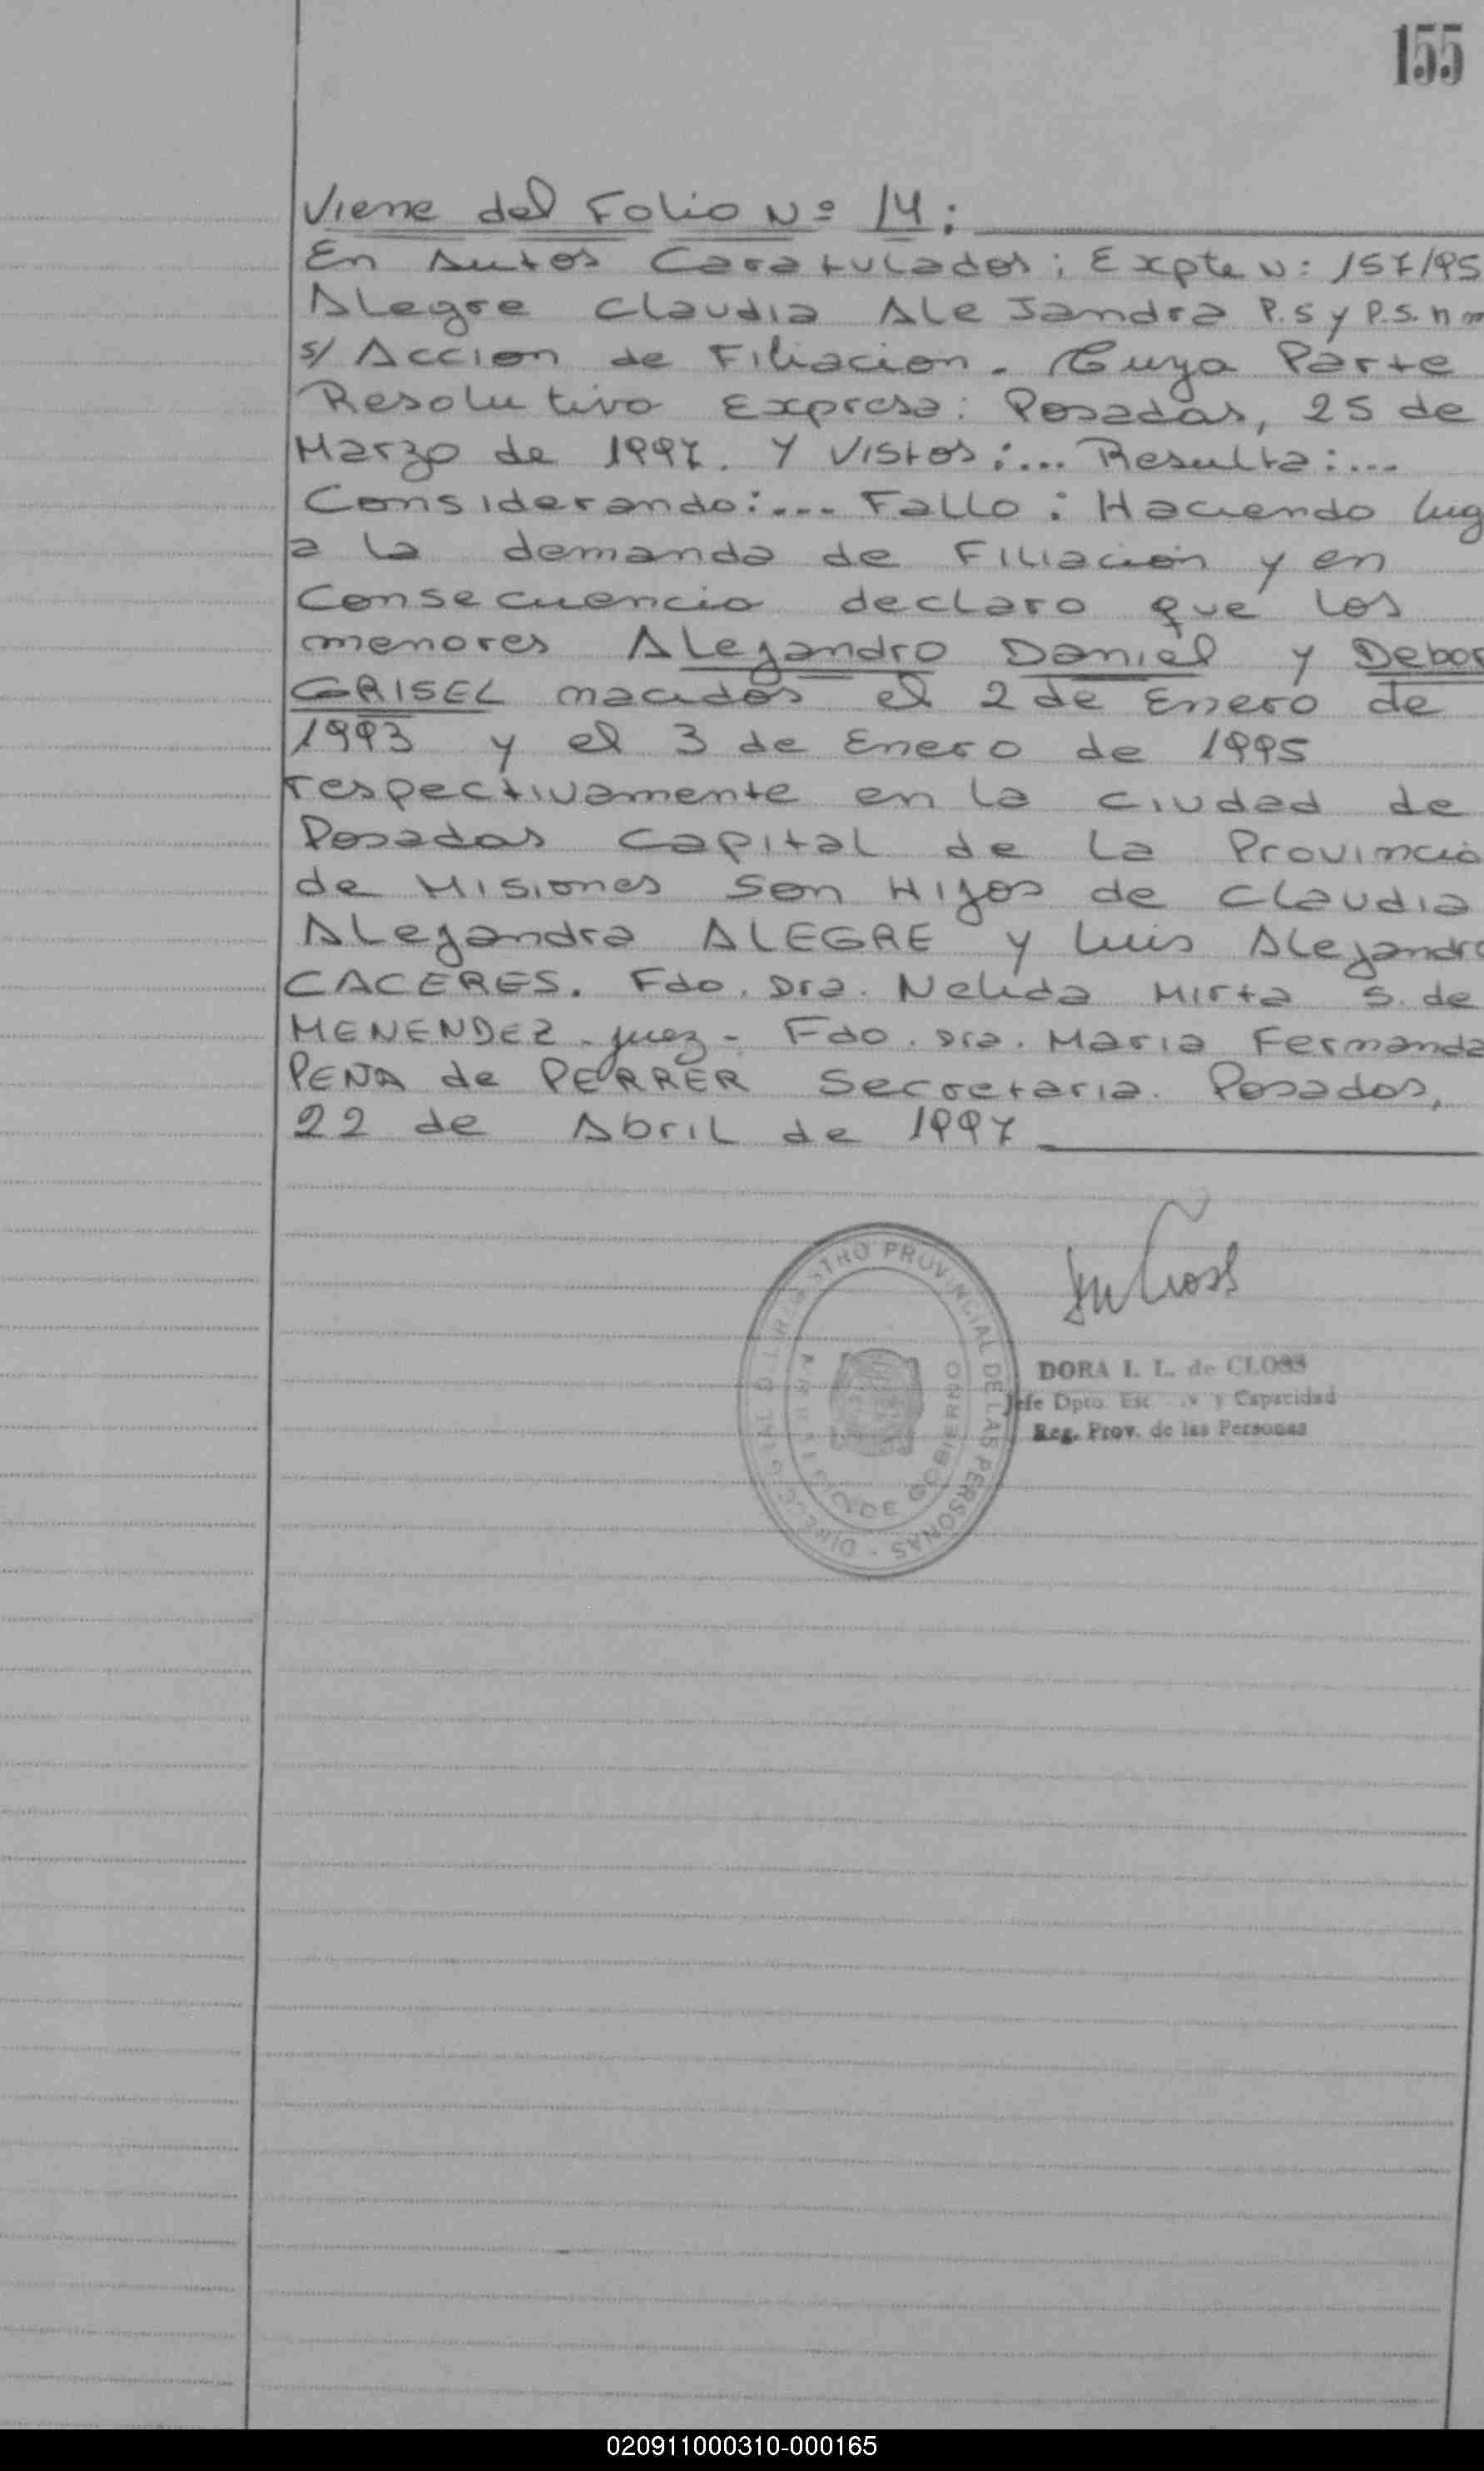 155
Viene del Folio Nº 14:
En Autos Caratulados: Expte N: 157/95
Alegre Claudia Ale Jandra P.S y P.S. h m
s/ Accion de Filiacion. Cuya Parte
Resolutiva Expresa: Posadas, 25 de
Marzo de 1997. Y Vistos:... Resulta:...
Considerando:... Fallo: Haciendo lug
a la demanda de Filiación y en
Consecuencia declaro que los
menores Alejandro Daniel y Debor
GRISEL nacidos el 2 de Enero de
1993 y el 3 de Enero de 1995
respectivamente en la ciudad de
Posadas Capital de La Provincia
de Misiones Son Hijos de Claudia
Alejandra ALEGRE y Luis Alejandro
CACERES. Fdo. Dra. Nelida Mirta S. de
MENENDEZ - juez - Fdo. Dra. Maria Fernanda
PENA de PERRER Secretaria. Posadas,
22 de Abril de 1997
REGISTRO PROVINCIAL DE LAS PERSONAS
DE GOBIERNO
DORA I. L. de CLOSS
Jefe Dpto. Est y Capacidad
Reg. Prov. de las Personas
020911000310-000165